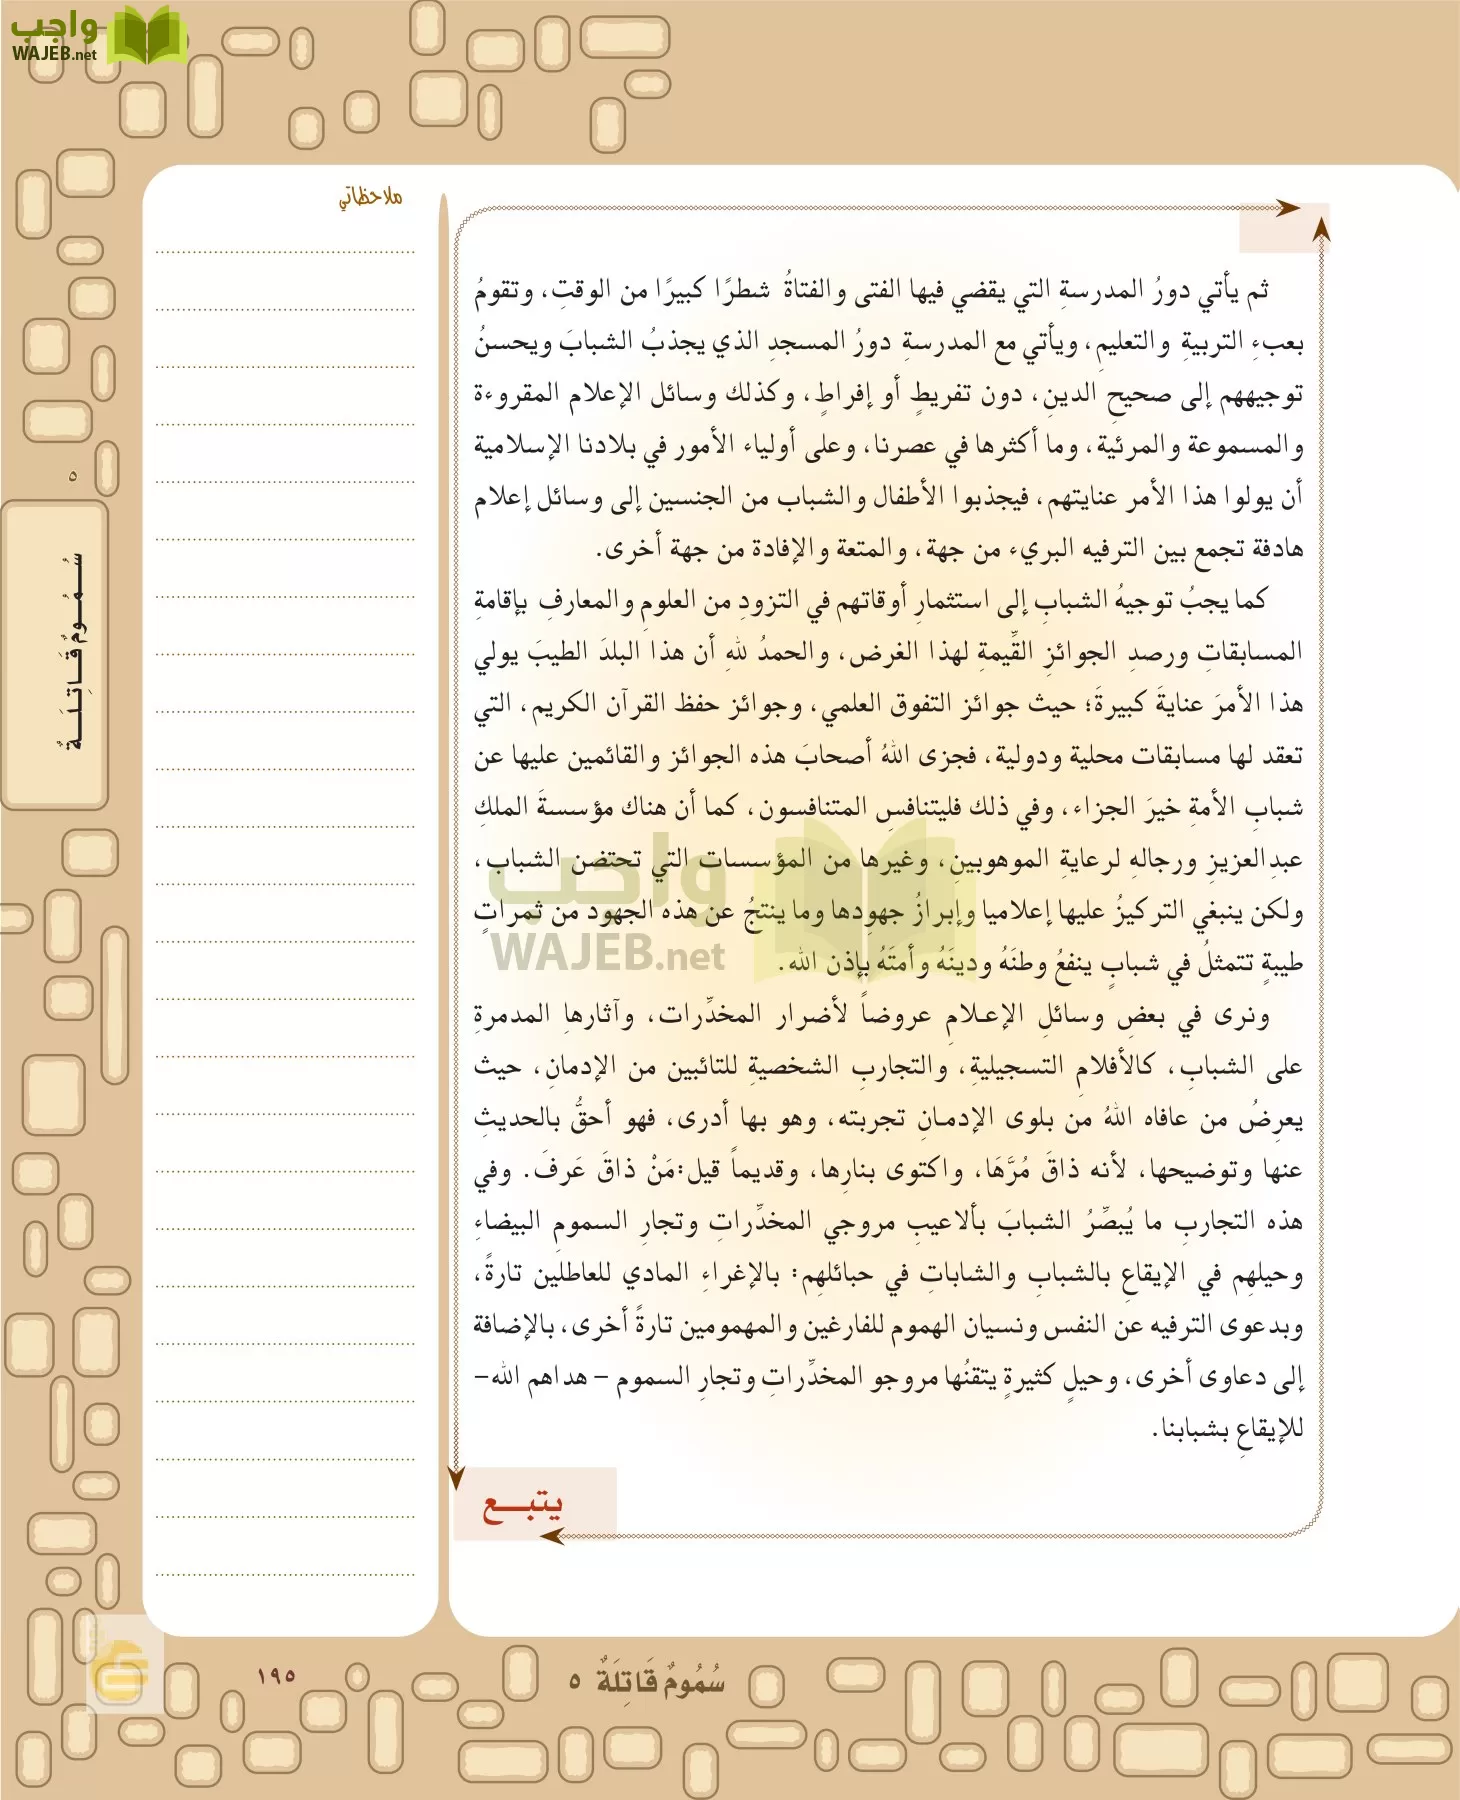 واجب
WAJEB.net
ملاحظاتي
ثم يأتي دورُ المدرسةِ التي يقضي فيها الفتى والفتاةُ شطرًا كبيرًا من الوقتِ، وتقومُ
بعبءِ التربيةِ والتعليمِ، ويأتي مع المدرسةِ دورُ المسجدِ الذي يجذبُ الشبابَ ويحسنُ
توجيههم إلى صحيحِ الدينِ، دون تفريطٍ أو إفراطٍ، وكذلك وسائل الإعلام المقروءة
والمسموعة والمرئية، وما أكثرها في عصرنا، وعلى أولياء الأمور في بلادنا الإسلامية
أن يولوا هذا الأمر عنايتهم، فيجذبوا الأطفال والشباب من الجنسين إلى وسائل إعلام
هادفة تجمع بين الترفيه البريء من جهة، والمتعة والإفادة من جهة أخرى.
كما يجبُ توجيهُ الشبابِ إلى استثمارِ أوقاتهم في التزودِ من العلومِ والمعارفِ بإقامةِ
المسابقاتِ ورصدِ الجوائزِ القيِّمةِ لهذا الغرض، والحمدُ للهِ أن هذا البلدَ الطيبَ يولي
هذا الأمرَ عنايةَ كبيرةَ؛ حيث جوائز التفوق العلمي، وجوائز حفظ القرآن الكريم، التي
تعقد لها مسابقات محلية ودولية، فجزى اللهُ أصحابَ هذه الجوائز والقائمين عليها عن
شبابِ الأمةِ خيرَ الجزاء، وفي ذلك فليتنافسِ المتنافسون، كما أن هناك مؤسسةَ الملكِ
عبدالعزيزِ ورجالهِ لرعايةِ الموهوبينِ، وغيرها من المؤسسات التي تحتضن الشباب،
ولكن ينبغي التركيزُ عليها إعلاميا وإبرازُ جهودها وما ينتجُ عن هذه الجهود من ثمراتٍ
طيبةٍ تتمثلُ في شبابٍ ينفعُ وطنَهُ ودينَهُ وأمتَهُ بإذن الله.
ونرى في بعضِ وسائلِ الإعلامِ عروضاً لأضرار المخدِّرات، وآثارها المدمرةِ
على الشبابِ، كالأفلامِ التسجيليةِ، والتجاربِ الشخصيةِ للتائبين من الإدمانِ، حيث
يعرِضُ من عافاه اللهُ من بلوى الإدمانِ تجربته، وهو بها أدرى، فهو أحقُّ بالحديثِ
عنها وتوضيحها، لأنه ذاقَ مُرَّهَا، واكتوى بنارِها، وقديماً قيل:مَنْ ذاقَ عَرفَ. وفي
هذه التجاربِ ما يُبصِّرُ الشبابَ بألاعيبِ مروجي المخدِّراتِ وتجارِ السمومِ البيضاءِ
وحيلهِم في الإيقاعِ بالشبابِ والشاباتِ في حبائلهِم: بالإغراءِ المادي للعاطلين تارةً،
وبدعوى الترفيه عن النفس ونسيان الهموم للفارغين والمهمومين تارةً أخرى، بالإضافة
إلى دعاوى أخرى، وحيلٍ كثيرةٍ يتقنُها مروجو المخدِّراتِ وتجارِ السموم – هداهم الله–
للإيقاعِ بشبابنا.
واجب
WAJEB.net
يتبـــع
٥
سُمُومٌ قَاتِلَةٌ
سُمُومٌ قَاتِلَةٌ ٥
١٩٥